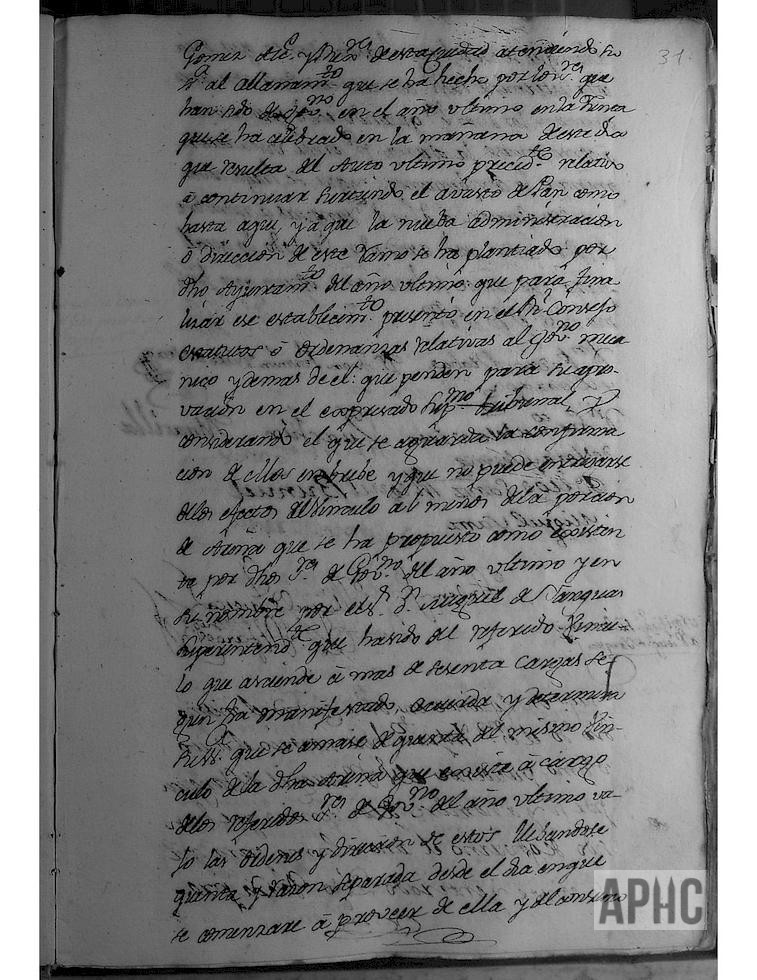 31.
Gomez Alc.e y Rex.res de esta Ciudad atendiendo Su
S.a al Allanam.to que se ha hecho por los S.res que
han sido de Gov.no en el año ultimo en la Junta
que se ha celebrado en la mañana de este dia
que resulta del Auto ultimo preced.te relativo
á continuar surtiendo el avasto de Pan como
hasta aqui, ya que la nueba administracion
ó direccion de este Ramo se ha plantiado por
dho Ayuntam.to del año ultimo: que para fina
lizar ese establecim.to presentó en el R.l Consejo
estatutos ó ordenanzas relativas al Gov.no meca
nico y demas de el: que penden para su apro-
vacion en el expresado Sup.mo tribunal, Y
considerando el que se aguarda la confirma
cion de ellos en brebe y que no puede
de los efectos del Vinculo á lo menos de la porcion
de Arina que se ha propuesto como existen
te por dhos S.res de Gov.no del año ultimo y en
su nombre por el S.r D.n Miguel de Tarazua
Superintend.te que ha sido del referido Vincu-
lo que asciende á mas de sesenta Cargas se-
gun ha manifestado, acuerda y determina
su SS. que se amase de quenta del mismo Vin-
culo de la dha Arina que existe á cargo
de los referidos S.res de Gov.no del año ultimo va-
jo las ordenes y direccion de estos. llebandose
quenta y razon separada desde el dia en que
se comenzare á proveer de ella y del consumo
APHC